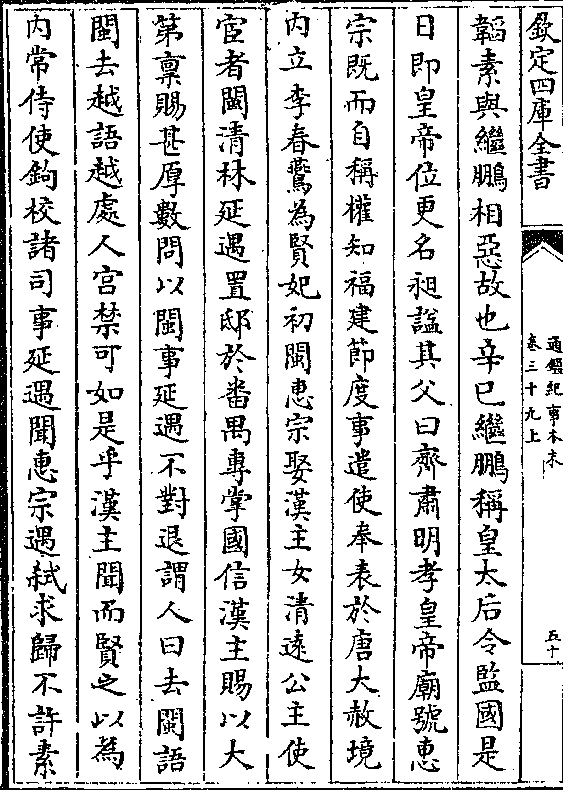 欽定四庫全書
通鑑紀事本末
卷三十九上
五十
韜素與繼鵬相惡故也辛巳繼鵬稱皇太后令監國是
日即皇帝位更名昶諡其父曰齊肅明孝皇帝廟號惠
宗既而自稱權知福建節度事遣使奉表於唐大赦境
内立李春鷰為賢妃初閩惠宗娶漢主女清遠公主使
宦者閩清林延遇置邸於番禺專掌國信漢主賜以大
第稟賜甚厚數問以閩事延遇不對退謂人曰去閩語
閩去越語越處人宫禁可如是乎漢主聞而賢之以為
内常侍使鉤校諸司事延遇聞惠宗遇弑求歸不許素